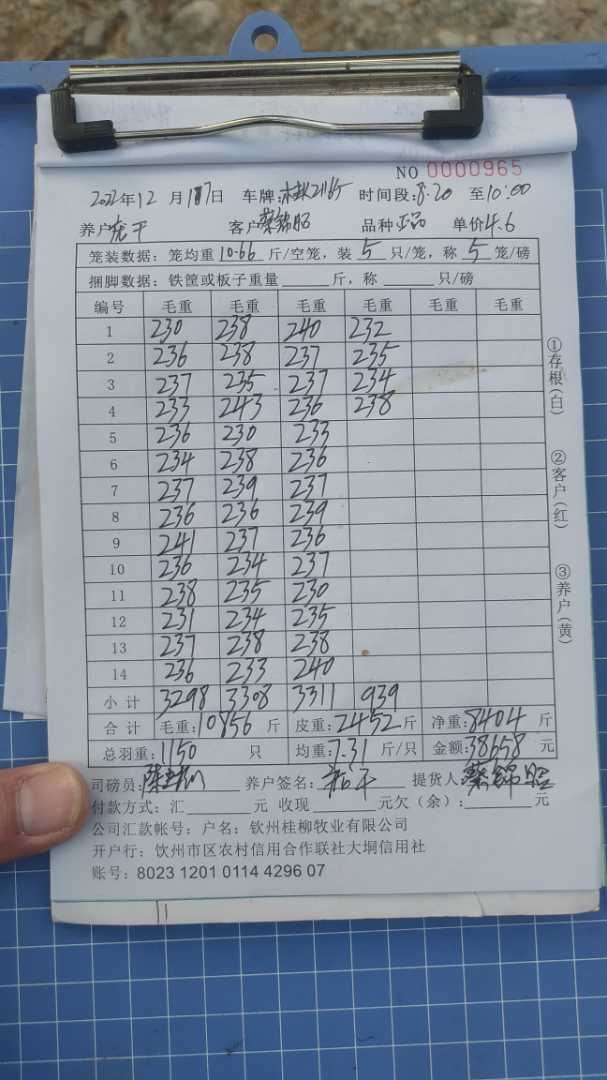 NO 0000965
2022年12月17日 车牌: 时间段:8:20 至10:00
养户: 客户蔡锦昭 品种正品 单价4.6
笼装数据: 笼均重 10.66 斤/空笼, 装 5 只/笼, 称 5 笼/磅
捆脚数据: 铁筐或板子重量 斤, 称 只/磅
编号 毛重 毛重 毛重 毛重 毛重 毛重
1 230 238 240 232
2 236 238 237 235
3 237 235 237 234
4 233 243 236 238
5 236 230 233
6 234 238 236
7 237 239 237
8 236 236 239
9 241 237 236
10 236 234 237
11 238 235 230
12 231 234 235
13 237 238 238
14 236 233 240
小计 3298 3308 3311 939
合计 毛重:10856 斤 皮重:2452斤 净重:8404 斤
总羽重:1150 只 均重:7.31 斤/只 金额:38658 元
司磅员: 养户签名: 提货人:蔡锦昭
付款方式: 汇 元 收现 元欠(余): 元
公司汇款帐号: 户名: 钦州桂柳牧业有限公司
开户行: 钦州市区农村信用合作联社大垌信用社
账号: 8023 1201 0114 4296 07
①存根(白)
②客户(红)
③养户(黄)